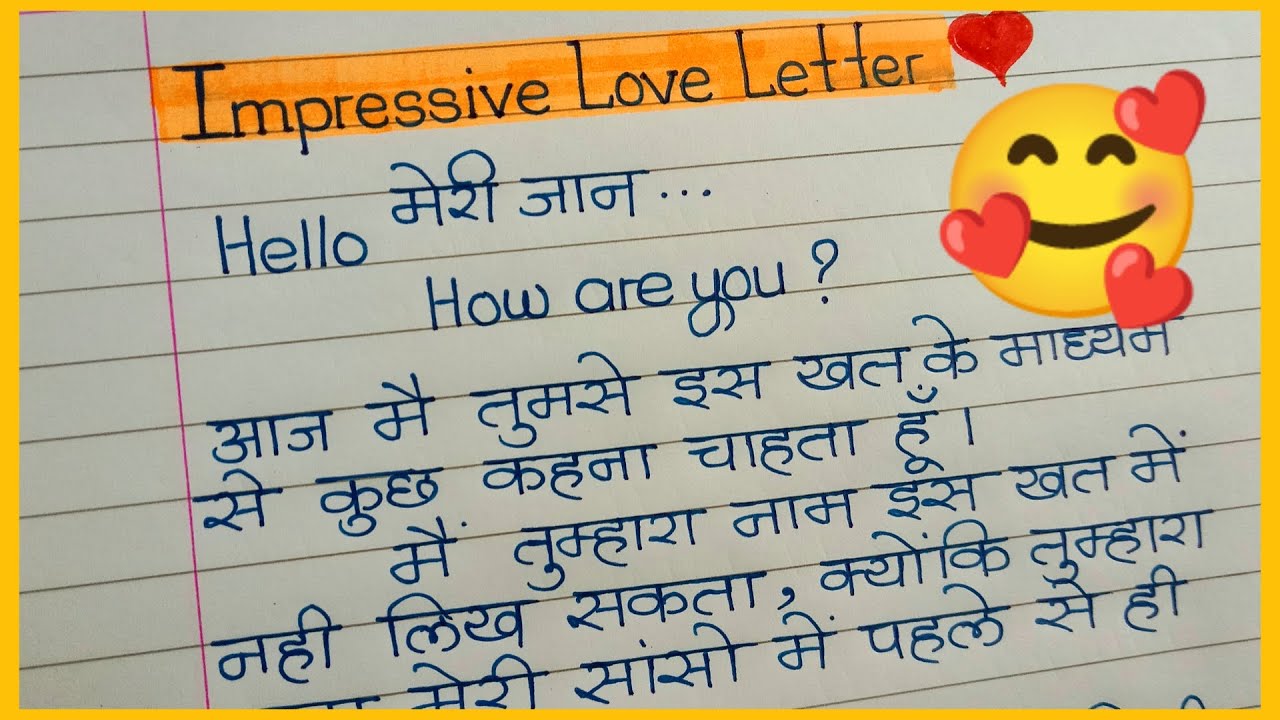 Impressive Love Letter
Hello मेरी जान...
How are you?
आज मै तुमसे इस खत के माध्यम
से कुछ कहना चाहता हूँ।
मैं तुम्हारा नाम इस खत में
नही लिख सकता, क्योंकि तुम्हारा
मेरी सांसो में पहले से ही